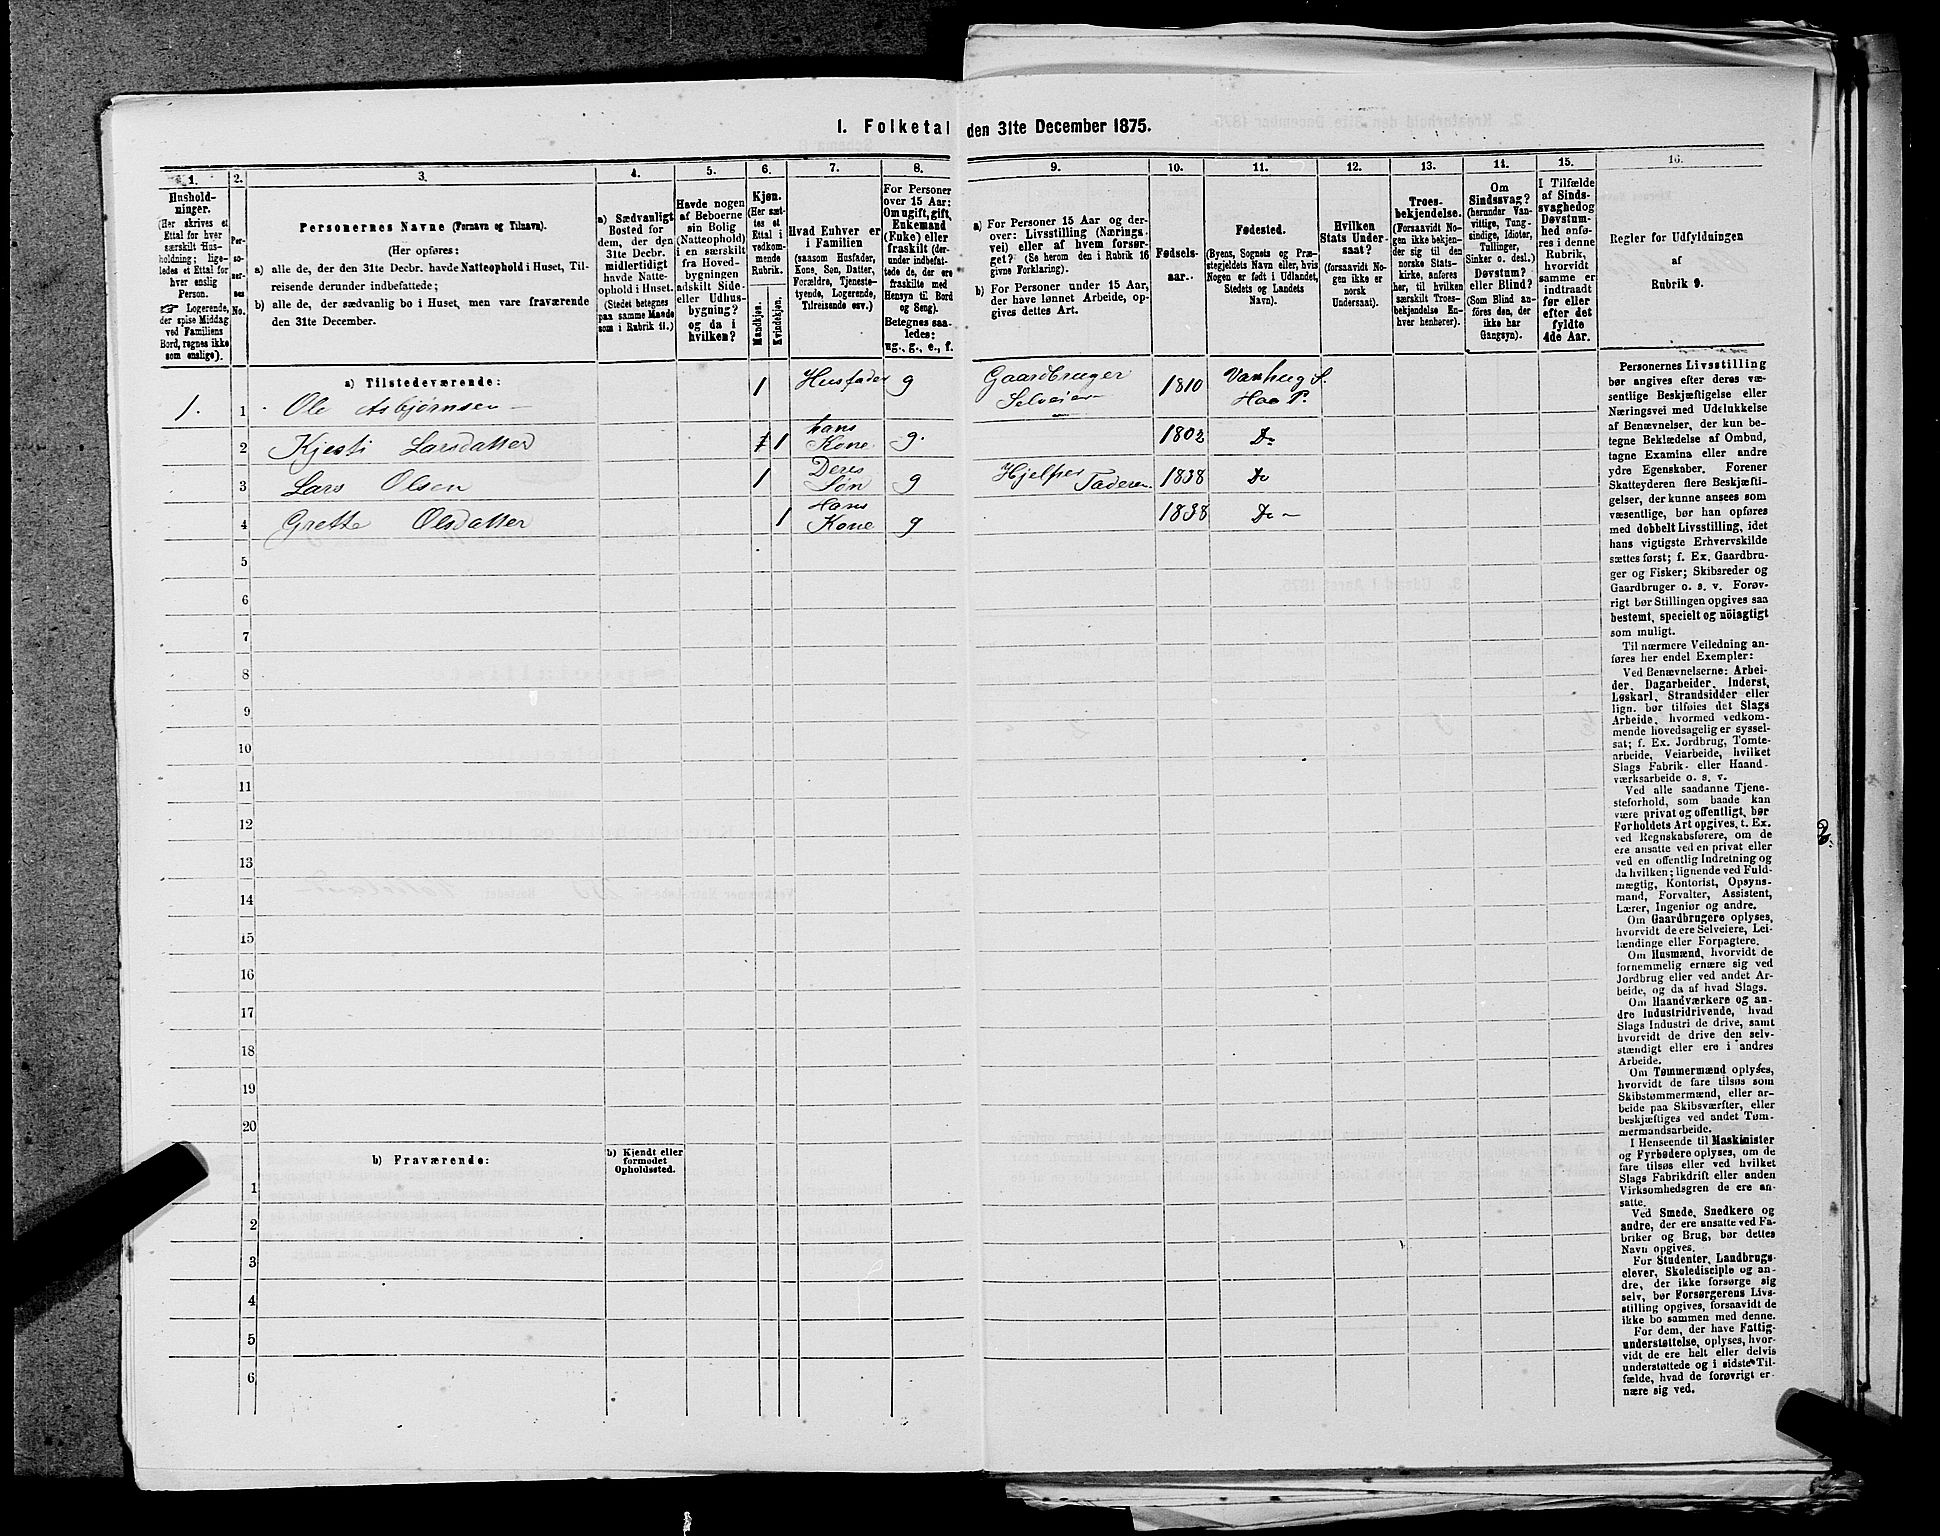 1. Folketal den 31te December 1875.
1.
Hushold-
ninger.
(Her skrives et
Ettal for hver
særskilt Hus-
holdning; lige-
ledes et Ettal for
hver enslig
Person.
☞ Logerende,
der spise Middag
ved Familiens
Bord, regnes ikke
som enslige).
2.
Per-
so-
ner-
nes
No.
3.
Personernes Navne (Fornavn og Tilnavn).
(Her opføres:
a) alle de, der den 31te Decbr. havde Natteophold i Huset, Til-
reisende derunder indbefattede;
b) alle de, der sædvanlig bo i Huset, men vare fraværende
den 31te December.
4.
a) Sædvanligt
Bosted for
dem, der den
31te Decbr.
midlertidigt
havde Natte-
ophold i Huset.
(Stedet betegnes
paa samme Maade
som i Rubrik 11.)
5.
Havde nogen
af Beboerne
sin Bolig
(Natteophold)
i en særskilt
fra Hoved-
bygningen
adskilt Side-
eller Udhus-
bygning?
og da i
hvilken?
6.
Kjøn.
(Her sæt-
tes et
Ettal i
vedkom-
mende
Rubrik.
Mandkjøn.
Kvindekjøn.
7.
Hvad Enhver er
i Familien
(saasom Husfader,
Kone, Søn, Datter,
Forældre, Tjeneste-
tyende, Logerende,
Tilreisende osv.)
8.
For Personer
over 15 Aar:
Om ugift, gift,
Enkemand
(Enke) eller
fraskilt (der-
under indbefat-
tede de, der ere
fraskilte med
Hensyn til Bord
og Seng).
Betegnes saa-
ledes:
ug., g., e., f.
9.
a) For Personer 15 Aar og der-
over: Livsstilling (Nærings-
vei) eller af hvem forsør-
get? (Se herom den i Rubrik 16
givne Forklaring).
b) For Personer under 15 Aar,
der have lønnet Arbeide, op-
gives dettes Art.
10.
Fødsels-
aar.
11.
Fødested.
(Byens, Sognets og Præ-
stegjeldets Navn eller, hvis
Nogen er født i Udlandet,
Stedets og Landets
Navn).
12.
Hvilken
Stats Under-
saat?
(forsaavidt No-
gen ikke er
norsk
Undersaat).
13.
Troes-
bekjendelse.
(Forsaavidt No-
gen ikke bekjen-
der sig til den
norske Stats-
kirke, anføres
her, til hvilken
særskilt Troes-
bekjendelse En-
hver henhører).
14.
Om
Sindssvag?
(herunder Van-
vittige, Tung-
sindige, Idioter,
Tullinger,
Sinker o. desl.)
Døvstum?
eller Blind?
(Som Blind an-
føres den, der
ikke har
Gangsyn).
15.
I Tilfælde
af Sinds-
svaghed og
Døvstum-
hed anfø-
res i denne
Rubrik,
hvorvidt
samme er
indtraadt
før eller
efter det
fyldte
4de Aar.
16.
Regler for Udfyldningen
af
Rubrik 9.
a) Tilstedeværende:
1. 1 Ole Asbjørnsen 1 Husfader g Gaardbruger Selveier 1810 Varhug S. Haa P.
2 Kjesti Larsdatter 1 hans Kone g. 1802 Do
3 Lars Olsen 1 Deres Søn g Hjelper Faderen 1838 Do
4 Grette Olsdatter 1 Hans Kone g 1838 Do
5
6
7
8
9
10
11
12
13
14
15
16
17
18
19
20
b) Fraværende:
b) Kjendt eller
formodet
Opholdssted.
1
2
3
4
5
6
Personernes Livsstilling
bør angives efter deres væ-
sentlige Beskjæftigelse eller
Næringsvei med Udelukkelse
af Benævnelser, der kun be-
tegne Beklædelse af Ombud,
tagne Examina eller andre
ydre Egenskaber. Forener
Skatteyderen flere Beskjæfti-
gelser, der kunne ansees som
væsentlige, bør han opføres
med dobbelt Livsstilling, idet
hans vigtigste Erhvervskilde
sættes først; f. Ex. Gaardbru-
ger og Fisker; Skibsreder og
Gaardbruger o. s. v. Forøv-
rigt bør Stillingen opgives saa
bestemt, specielt og nöiagtigt
som muligt.
Til nærmere Veiledning an-
føres her endel Exempler:
Ved Benævnelserne: Arbei-
der, Dagarbeider, Inderst,
Løskarl, Strandsidder eller
lign. bør tilføies det Slags
Arbeide, hvormed vedkom-
mende hovedsagelig er syssel-
sat; f. Ex. Jordbrug, Tomte-
arbeide, Veiarbeide, hvilket
Slags Fabrik- eller Haand-
værksarbeide o. s. v.
Ved alle saadanne Tjene-
steforhold, som baade kan
være privat og offentligt, bør
Forholdets Art opgives, t. Ex.
ved Regnskabsførere, om de
ere ansatte ved en privat eller
ved en offentlig Indretning og
da hvilken; lignende ved Fuld-
mægtig, Kontorist, Opsyns-
mand, Forvalter, Assistent,
Lærer, Ingeniør og andre.
Om Gaardbrugere oplyses,
hvorvidt de ere Selveiere, Lei-
lændinge eller Forpagtere.
Om Husmænd, hvorvidt de
fornemmelig ernære sig ved
Jordbrug eller ved andet Ar-
beide, og da af hvad Slags.
Om Haandværkere og an-
dre Industridrivende, hvad
Slags Industri de drive, samt
hvorvidt de drive den selv-
stændigt eller ere i andres
Arbeide.
Om Tømmermænd oplyses,
hvorvidt de fare tilsøs som
Skibstømmermænd, eller ar-
beide paa Skibsværfter, eller
beskjæftiges ved andet Tøm-
mermandsarbeide.
I Henseende til Maskinister
og Fyrbødere oplyses, om de
fare tilsøs eller ved hvilket
Slags Fabrikdrift eller anden
Virksomhedsgren de ere an-
satte.
Ved Smede, Snedkere og
andre, der ere ansatte ved Fa-
briker og Brug, bør dettes
Navn opgives.
For Studenter, Landbrugs-
elever, Skoledisciple og an-
dre, der ikke forsørge sig
selv, bør Forsørgerens Livs-
stilling opgives, forsaavidt de
ikke bo sammen med denne.
For dem, der have Fattig-
understøttelse, oplyses, hvor-
vidt de ere helt eller delvis
understøttede og i sidste Til-
fælde, hvad de forøvrigt er-
nære sig ved.